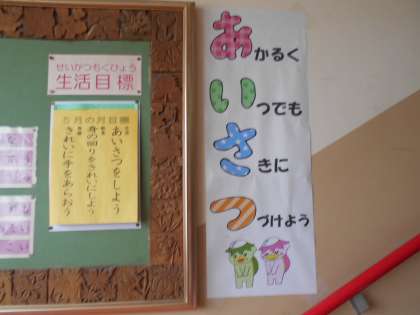 せいかつもくひょう
生活目標
5月の月目標
あいさつをしよう
身の回りをきれいにしよう
きれいに手をあらおう
あかるく
いつでも
さきに
つづけよう